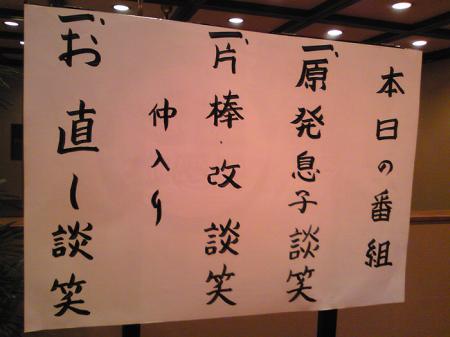 本日の番組
一、原発息子 談笑
一、片棒・改 談笑
仲入り
一、お直し 談笑